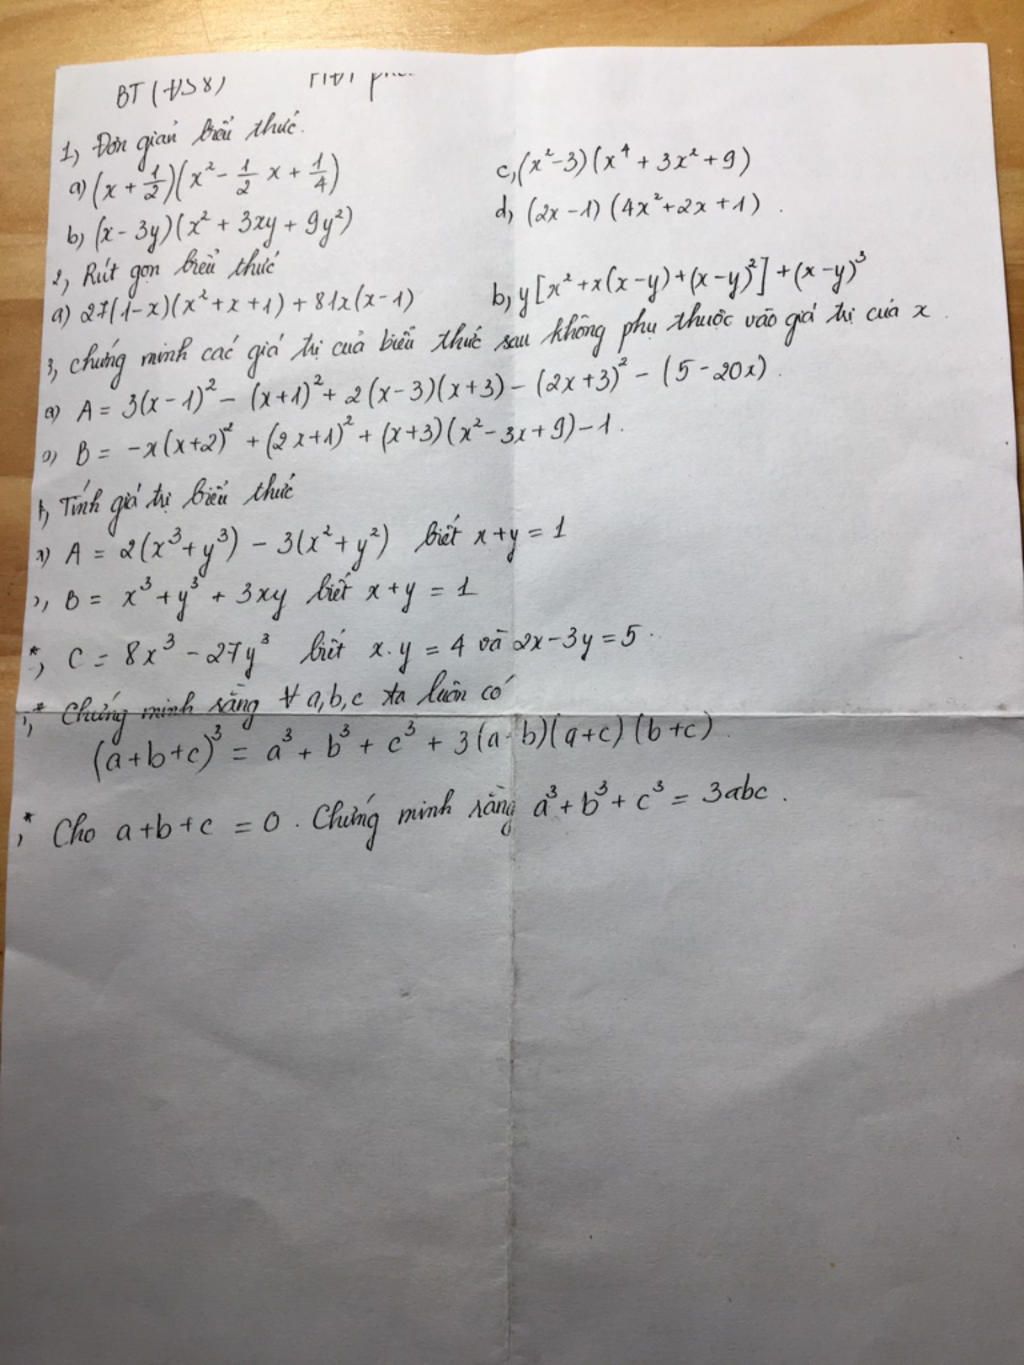 BT (ĐS 8)
1, Đơn giản biểu thức.
a) (x + 1/2)(x² - 1/2 x + 1/4)
c, (x² - 3)(x⁴ + 3x² + 9)
b, (x - 3y)(x² + 3xy + 9y²)
d, (2x - 1)(4x² + 2x + 1).
2, Rút gọn biểu thức
a) 27(1 - x)(x² + x + 1) + 81x(x - 1)
b, y[x² + x(x - y) + (x - y)²] + (x - y)³
3, Chứng minh các giá trị của biểu thức sau không phụ thuộc vào giá trị của x.
a) A = 3(x - 1)² - (x + 1)² + 2(x - 3)(x + 3) - (2x + 3)² - (5 - 20x).
B = -x(x + 2)² + (2x + 1)² + (x + 3)(x² - 3x + 9) - 1.
Tính giá trị biểu thức
A = 2(x³ + y³) - 3(x² + y²) biết x + y = 1
B = x³ + y³ + 3xy biết x + y = 1
*, C = 8x³ - 27y³ biết x.y = 4 và 2x - 3y = 5.
* Chứng minh rằng ∀ a,b,c ta luôn có
(a + b + c)³ = a³ + b³ + c³ + 3(a+b)(a+c)(b+c).
* Cho a + b + c = 0. Chứng minh rằng a³ + b³ + c³ = 3abc.